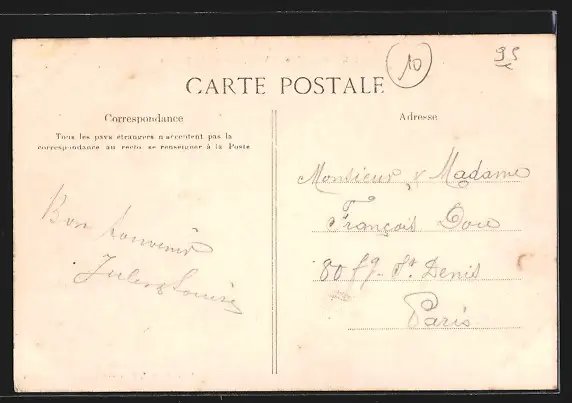 10
95
CARTE POSTALE
Correspondance
Tous les pays étrangers n'acceptent pas la
correspondance au recto se renseigner à la Poste
Adresse
Bon Souvenir
Jules & Louise
Monsieur & Madame
François
80 fg. St Denis
Paris